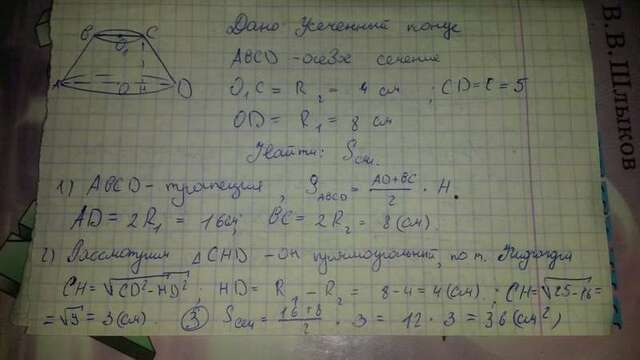 В.В. Шлыков
B C
O₁
A O H D
Дано: Усеченный конус
ABCD - осевое сечение
O₁C = R₂ = 4 см ; CD = l = 5
OD = R₁ = 8 см
Найти: Sсеч.
1) ABCD - трапеция , S_ABCD = (AD+BC)/2 · H.
AD = 2R₁ = 16см; BC = 2R₂ = 8(см).
2) Рассмотрим △CHD - он прямоугольный, по т. Пифагора
CH = √(CD²-HD²) ; HD = R₁ - R₂ = 8-4=4(см) ; CH = √(25-16) =
= √9 = 3(см). ③ Sсеч = (16+8)/2 · 3 = 12 · 3 = 36(см²)